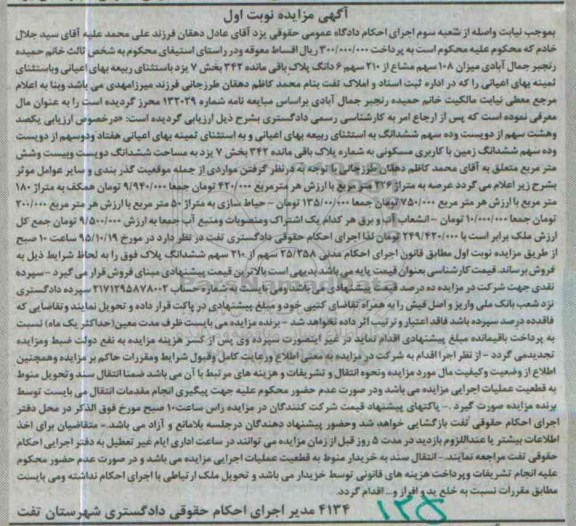 آگهی مزایده نوبت اول
بموجب نیابت واصله از شعبه سوم اجرای احکام دادگاه عمومی حقوقی یزد آقای عادل دهقان فرزند علی محمد علیه آقای سید جلال
خادم که محکوم علیه محکوم است به پرداخت ۳۰۰/۰۰۰/۰۰۰ ریال اقساط معوقه ودر راستای استیفای محکوم به شخص ثالث خانم حمیده
رنجبر جمال آبادی میزان ۱۰۸ سهم مشاع از ۲۱۰ سهم ۶ دانگ پلاک باقی مانده ۳۴۲ بخش ۷ یزد باستثنای ربیعه بهای اعیانی وباستثنای
ثمینه بهای اعیانی را که در اداره ثبت اسناد و املاک تفت بنام محمد کاظم دهقان طرزجانی فرزند میرزامهدی می باشد وبنا به اعلام
مرجع معطی نیابت مالکیت خانم حمیده رنجبر جمال آبادی براساس مبایعه نامه شماره ۱۳۲۰۲۹ محرز گردیده است را به عنوان مال
معرفی نموده است که پس از ارجاع امر به کارشناسی رسمی دادگستری بشرح ذیل ارزیابی گردیده است: «درخصوص ارزیابی یکصد
وهشت سهم از دویست وده سهم ششدانگ به استثنای ربیعه بهای اعیانی و به استثنای ثمینه بهای اعیانی هفتاد ودوسهم از دویست
وده سهم ششدانگ زمین با کاربری مسکونی به شماره پلاک باقی مانده ۳۴۲ بخش ۷ یزد به مساحت ششدانگ دویست وبیست وشش
متر مربع متعلق به آقای محمد کاظم دهقان طرزجانی با توجه به درنظر گرفتن مواردی از جمله موقعیت گذر بندی و سایر عوامل موثر
بشرح زیر اعلام می گردد عرصه به متراژ ۲۲۶ متر مربع با ارزش هر مترمربع ۴۲۰/۰۰۰ تومان جمعا ۹/۹۴۰/۰۰۰ تومان همکف به متراژ ۱۸۰
متر مربع با ارزش هر متر مربع ۷۵۰/۰۰۰ تومان جمعا ۱۳۵/۰۰۰/۰۰۰ تومان - حیاط سازی به متراژ ۵۰ متر مربع با ارزش هر متر مربع ۲۰۰/۰۰۰
تومان جمعا ۱۰/۰۰۰/۰۰۰ تومان - انشعاب آب و برق هر کدام یک اشتراک ومنصوبات ومنبع آب جمعا به ارزش ۹/۵۰۰/۰۰۰ تومان جمع کل
ارزش ملک برابر است با ۲۴۹/۴۲۰/۰۰۰ تومان لذا اجرای احکام حقوقی دادگستری تفت در نظر دارد در مورخ ۹۵/۱۰/۱۹ ساعت ۱۰ صبح
از طریق مزایده نوبت اول مطابق قانون اجرای احکام مدنی ۲۵/۳۵۸ سهم از ۲۱۰ سهم ششدانگ پلاک فوق را به لحاظ شرایط ذیل به
فروش برساند. قیمت کارشناسی بعنوان قیمت پایه می باشد بدیهی است بالاترین قیمت پیشنهادی مبنای فروش قرار می گیرد - سپرده
نقدی جهت شرکت در مزایده ده درصد قیمت پیشنهادی می باشد ومی بایست به شماره حساب ۲۱۷۱۲۹۵۸۷۸۰۰۲ سپرده دادگستری
نزد شعب بانک ملی واریز و اصل فیش را به همراه تقاضای کتبی خود و مبلغ پیشنهادی در پاکت قرار داده و تحویل نمایند وتقاضایی که
فاقد ده درصد سپرده باشد فاقد اعتبار و ترتیب اثر داده نخواهد شد - برنده مزایده می بایست ظرف مدت معین(حداکثر یک ماه) نسبت
به پرداخت باقیمانده مبلغ پیشنهادی اقدام نماید در غیر اینصورت سپرده وی پس از کسر هزینه مزایده به نفع دولت ضبط ومزایده
تجدیدمی گردد - از نظر اجرا اقدام به شرکت در مزایده به معنی اطلاع ورعایت کامل وقبول شرایط ومقررات حاکم بر مزایده وهمچنین
اطلاع از وضعیت وکیفیت مال مورد مزایده ونحوه انتقال و تشریفات و هزینه های مرتبط با آن می باشد ضمنا انتقال سند وتحویل منوط
به قطعیت عملیات اجرایی مزایده می باشد ودر صورت عدم حضور محکوم علیه جهت پیگیری انجام مقدمات انتقال می بایست توسط
برنده مزایده صورت گیرد .- پاکتهای پیشنهاد قیمت شرکت کنندگان در مزایده راس ساعت۱۰ صبح مورخ فوق الذکر در محل دفتر
اجرای احکام حقوقی تفت بازگشایی خواهد شد وحضور پیشنهاد دهندگان درجلسه بلامانع و آزاد می باشد.- متقاضیان برای اخذ
اطلاعات بیشتر یا عنداللزوم بازدید در مدت ۵ روز قبل از زمان مزایده می توانند در ساعت اداری ایام غیر تعطیل به دفتر اجرایی احکام
حقوقی تفت مراجعه نمایند.- انتقال سند به خریدار منوط به قطعیت عملیات اجرایی مزایده می باشد و در صورت عدم حضور محکوم
علیه انجام تشریفات وپرداخت هزینه های قانونی توسط خریدار می باشد و تحویل ملک ارتباطی با اجرای احکام نداشته ومی بایست
مطابق مقررات نسبت به خلع ید و افراز و... اقدام گردد.
۴۱۳۴ مدیر اجرای احکام حقوقی دادگستری شهرستان تفت